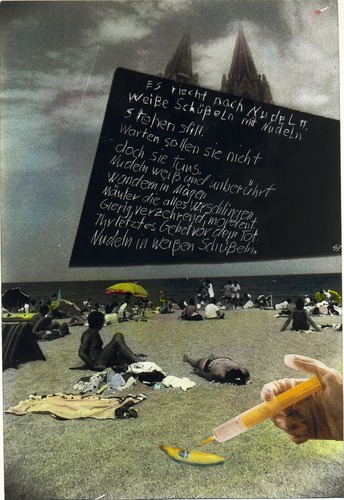 Es riecht nach Nudeln.
Weiße Schüßeln mit Nudeln
stehen still.
Warten sollen sie nicht
doch sie tuns.
Nudeln weiß und unberührt
Wandern in Mägen
Mäuler die alles verschlingen
Gierig verzehrend, mordent
Ihr letztes Gebet vor dem Tot
Nudeln in weißen Schüßeln